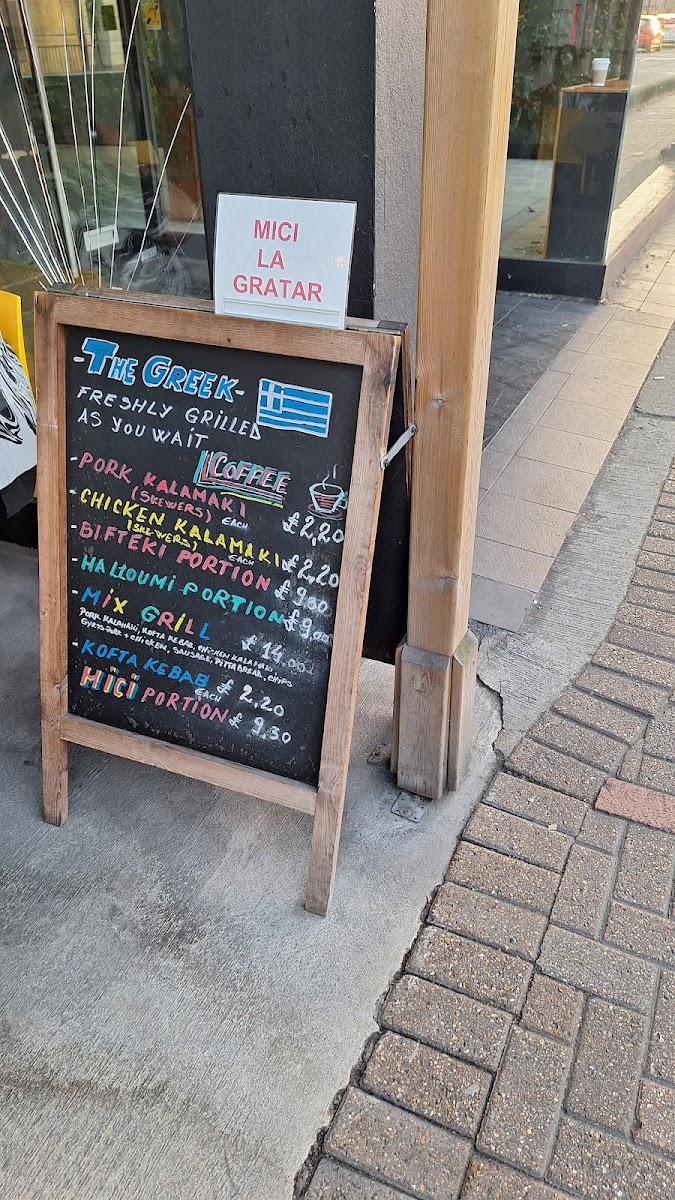 MICI
LA
GRATAR
- THE GREEK -
FRESHLY GRILLED
AS YOU WAIT
COFFEE
- PORK KALAMAKI
(SKEWERS) EACH £2,20
- CHICKEN KALAMAKI
(SKEWERS) EACH £2,20
- BIFTEKI PORTION £9.30
- HALLOUMI PORTION £9,00
- MIX GRILL £14,00
PORK KALAMAKI, KOFTA KEBAB, CHICKEN KALAMAKI
GYROS PORK + CHICKEN, SAUSAGE, PITTA BREAD, CHIPS
- KOFTA KEBAB EACH £2,20
MICI PORTION £9,30